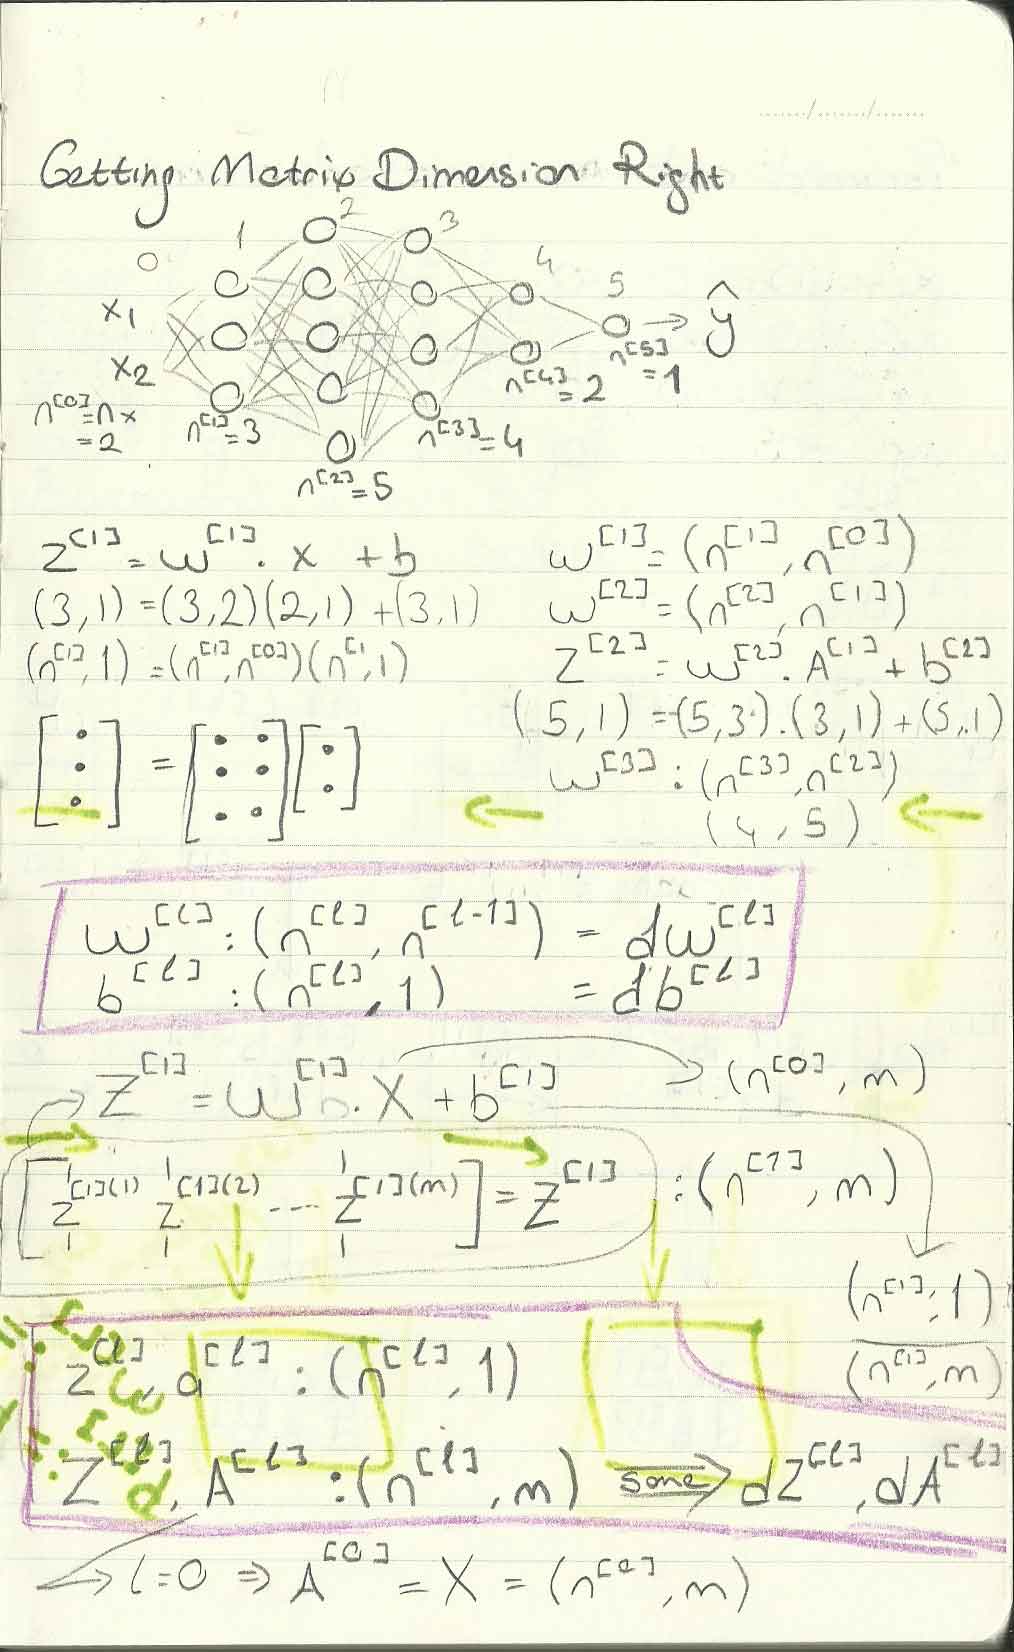 Getting Matrix Dimension Right
0 1 2 3 4 5
x1
x2
ŷ
n[0]=nx
=2
n[1]=3
n[2]=5
n[3]=4
n[4]=2
n[5]=1
z[1]=w[1].x+b
(3,1)=(3,2)(2,1)+(3,1)
(n[1],1)=(n[1],n[0])(n[1,1)
w[1]=(n[1],n[0])
w[2]=(n[2],n[1])
z[2]=w[2].A[1]+b[2]
(5,1)=(5,3).(3,1)+(5,1)
w[3]:(n[3],n[2])
(4,5)
w[l]:(n[l],n[l-1])=dw[l]
b[l]:(n[l],1)=db[l]
Z[1]=w[1].X+b[1]
(n[0],m)
[z[1](1) z[1](2) ---- z[1](m)]=Z[1]:(n[1],m)
(n[1],1)
(n[1],m)
z[l],a[l]:(n[l],1)
Z[l],A[l]:(n[l],m) same dZ[l],dA[l]
l=0 ⇒ A[0]=X=(n[0],m)